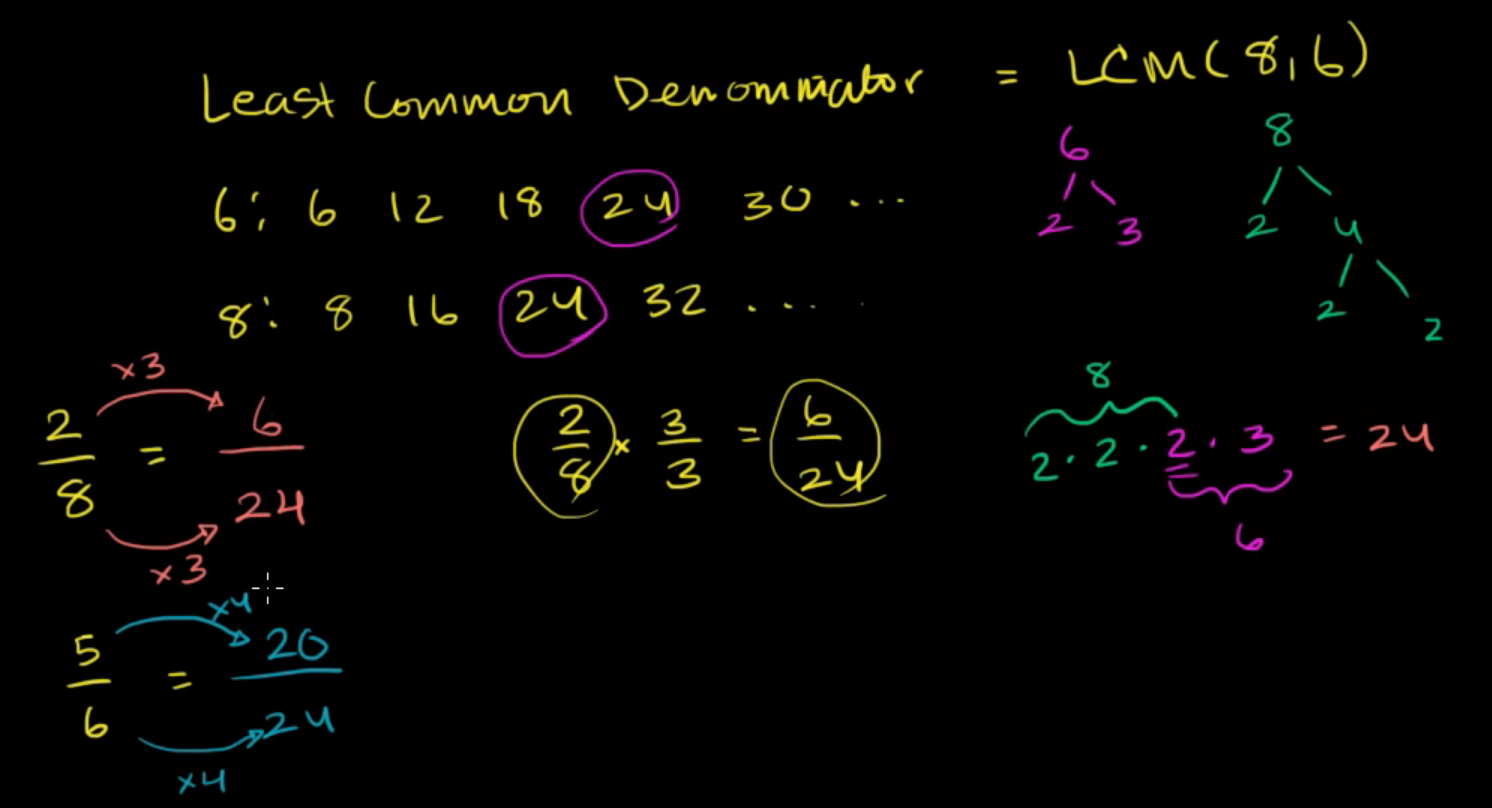 Least Common Denominator = LCM(8,6)
6: 6 12 18 24 30 ...
8: 8 16 24 32 ....
6
2 3
8
2 4
2 2
×3
2/8 = 6/24
×3
2/8 × 3/3 = 6/24
8
2·2·2·3 = 24
6
×4
5/6 = 20/24
×4